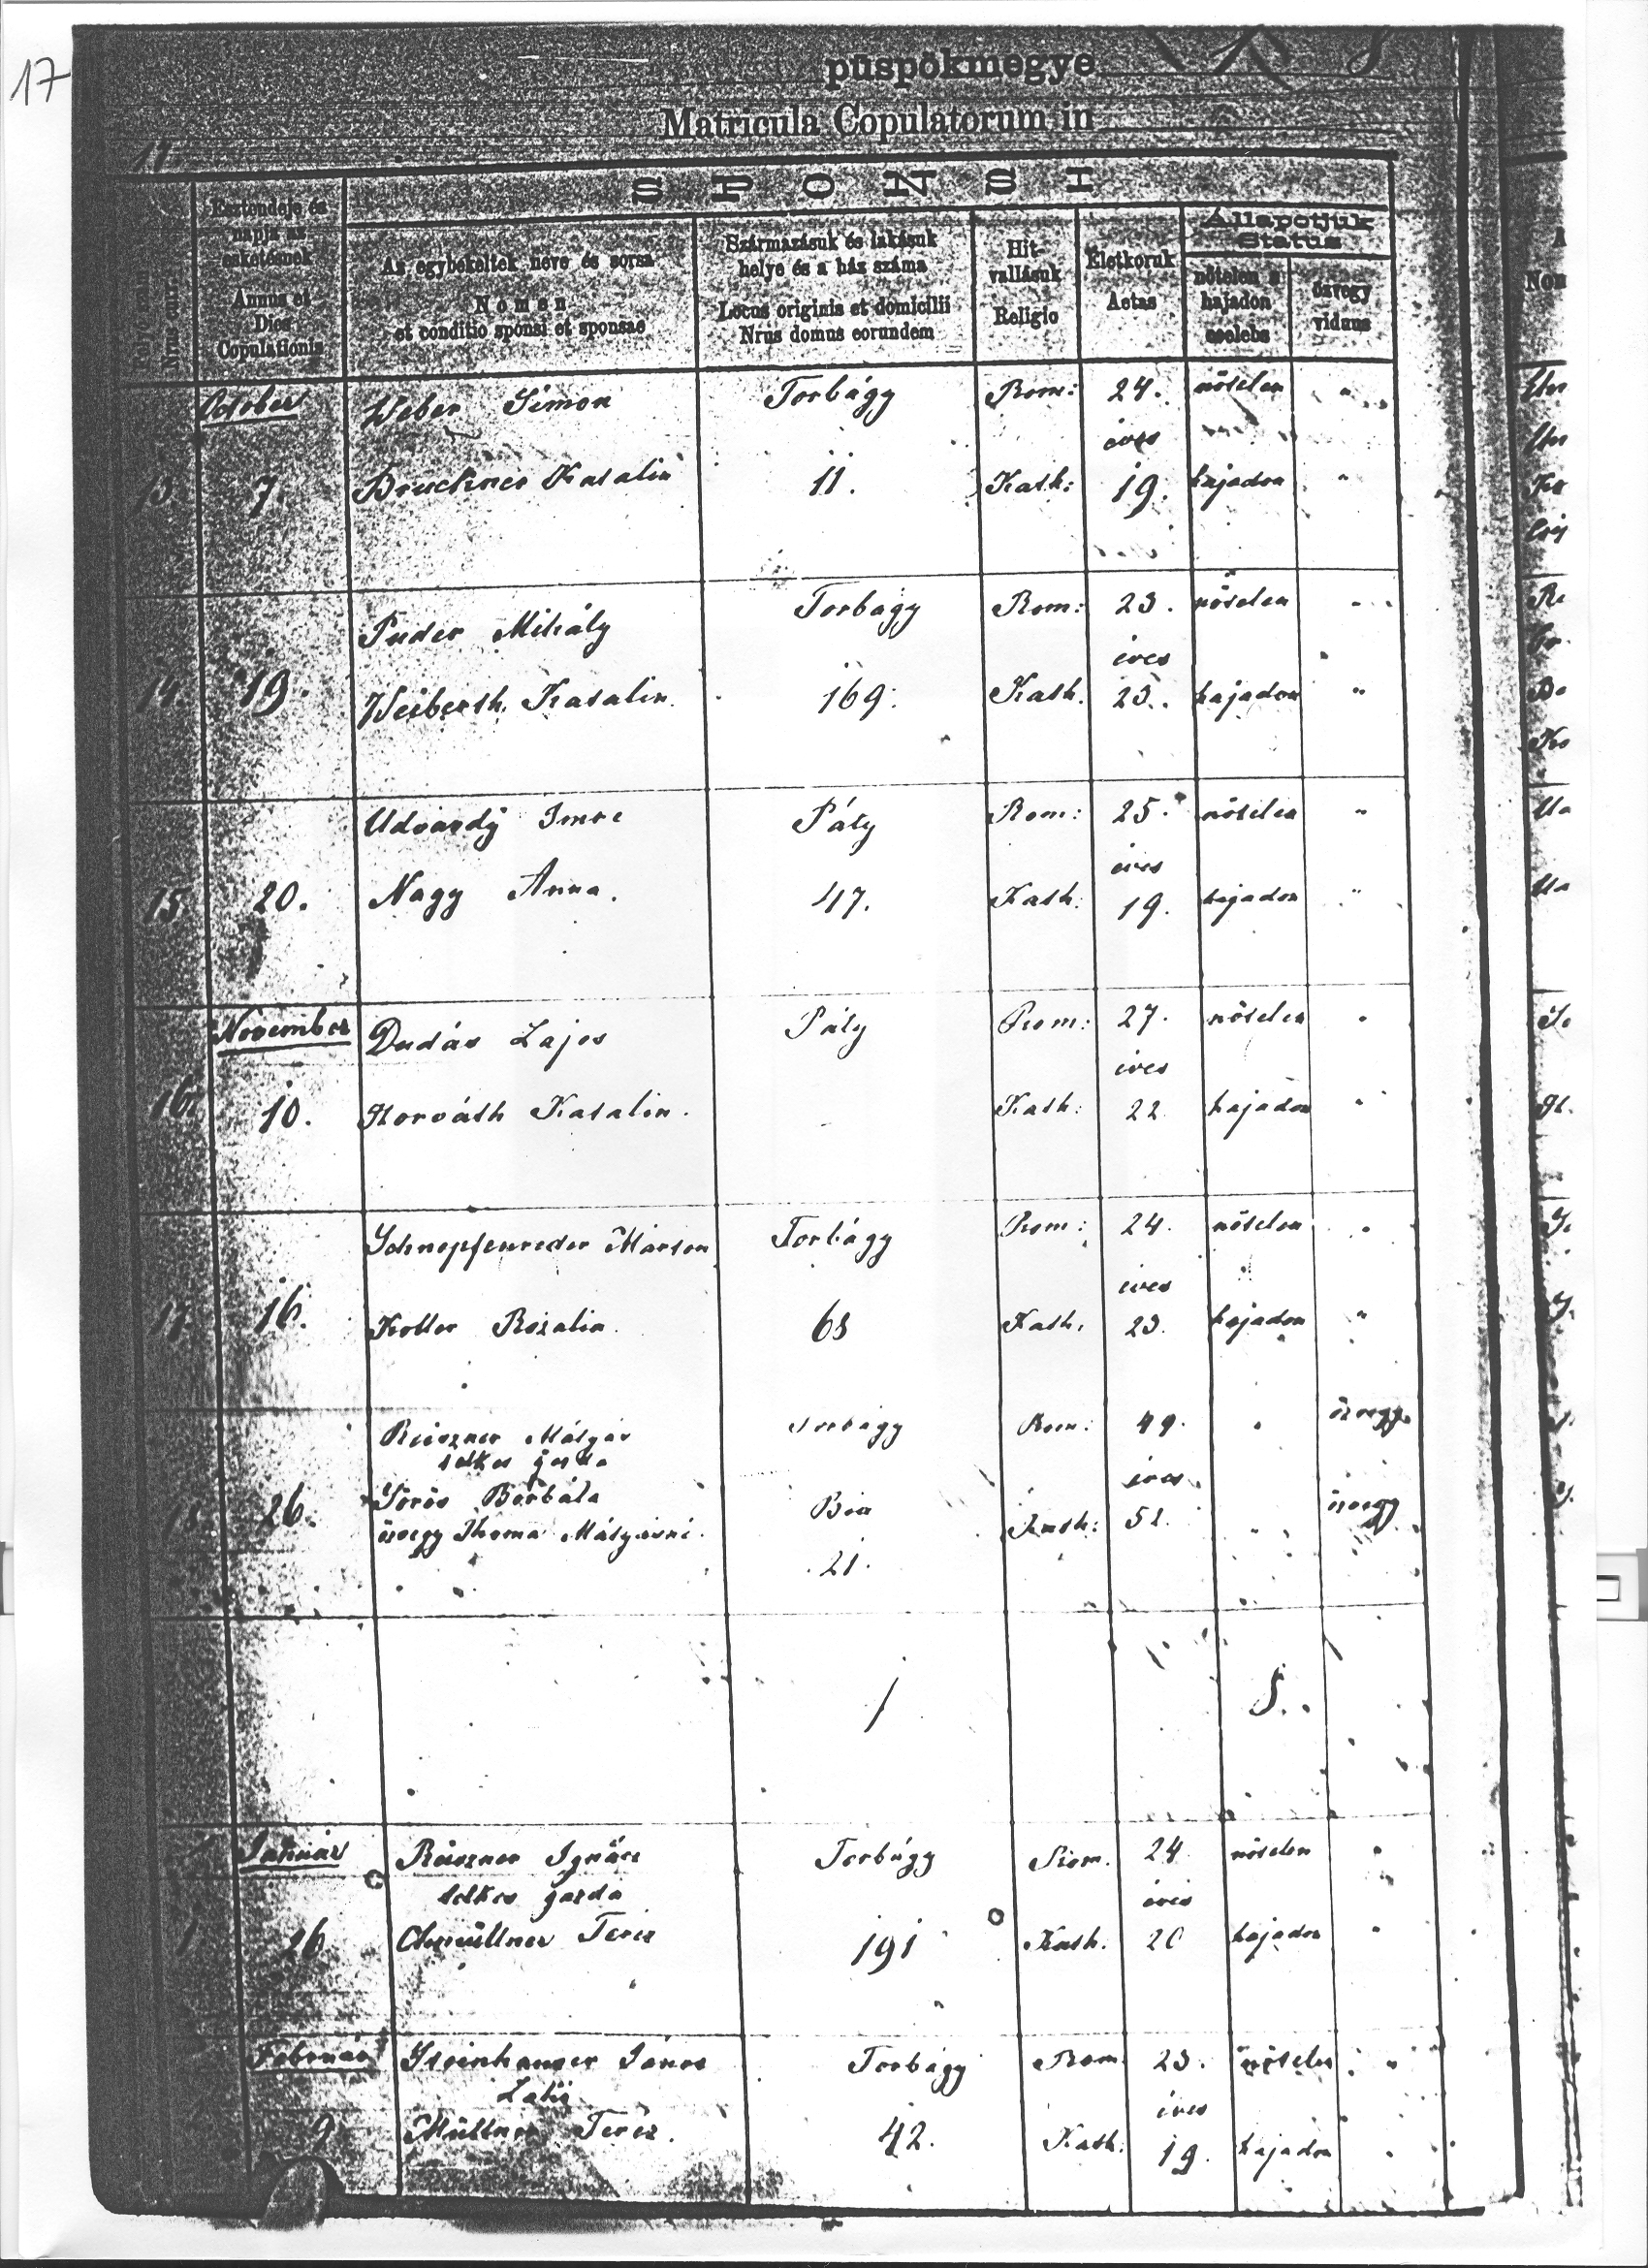 17
püspökmegye
Matricula Copulatorum in
SPONSI
Esztendeje és napja az esketésnek
Annus et Dies Copulationis
Az egybekeltek neve és sorsa
Nomen et conditio sponsi et sponsae
Származásuk és lakásuk helye és a ház száma
Locus originis et domicilii Nrus domus eorundem
Hitvallásuk
Religio
Életkoruk
Aetas
Állapotjuk
Status
nőtelen s hajadon coelebs
özvegy viduus
October Weber Simon Torbágy Rom: 24. nőtelen "
éves
13 7. Bruckner Katalin 11. Kath: 19. hajadon "
Puder Mihály Torbagy Rom: 23. nőtelen "
éves
14. 19. Weiberth Katalin. 169. Kath. 23. hajadon "
Udvardy Imre Páty Rom: 25. nőtelen "
éves
15 20. Nagy Anna. 47. Kath: 19. hajadon "
November Dudás Lajos Páty Rom: 27. nőtelen "
éves
16. 10. Horváth Katalin. Kath: 22 hajadon "
Schnepfenreder Márton Torbágy Rom: 24. nőtelen "
éves
17 16. Koller Rozalia. 68 Kath. 23. hajadon "
Reiszner Mátyás Torbágy Rom: 49. " özvegy
telkes gazda
éves
18 26. Sörös Borbála Bia Kath: 52. " özvegy
özvegy Thoma Mátyásné. 21.
Január Reiszner Ignácz Torbágy Rom. 24 nőtelen "
telkes gazda éves
1 26 Teréz 191 Kath. 20 hajadon "
Február Steinhauser János Torbágy Rom 23. nőtelen "
éves
9 Müllner Teréz. 42. Kath: 19. hajadon "